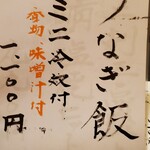 うなぎ飯
ミニ冷奴付
登切 味噌汁付
一、二〇〇円